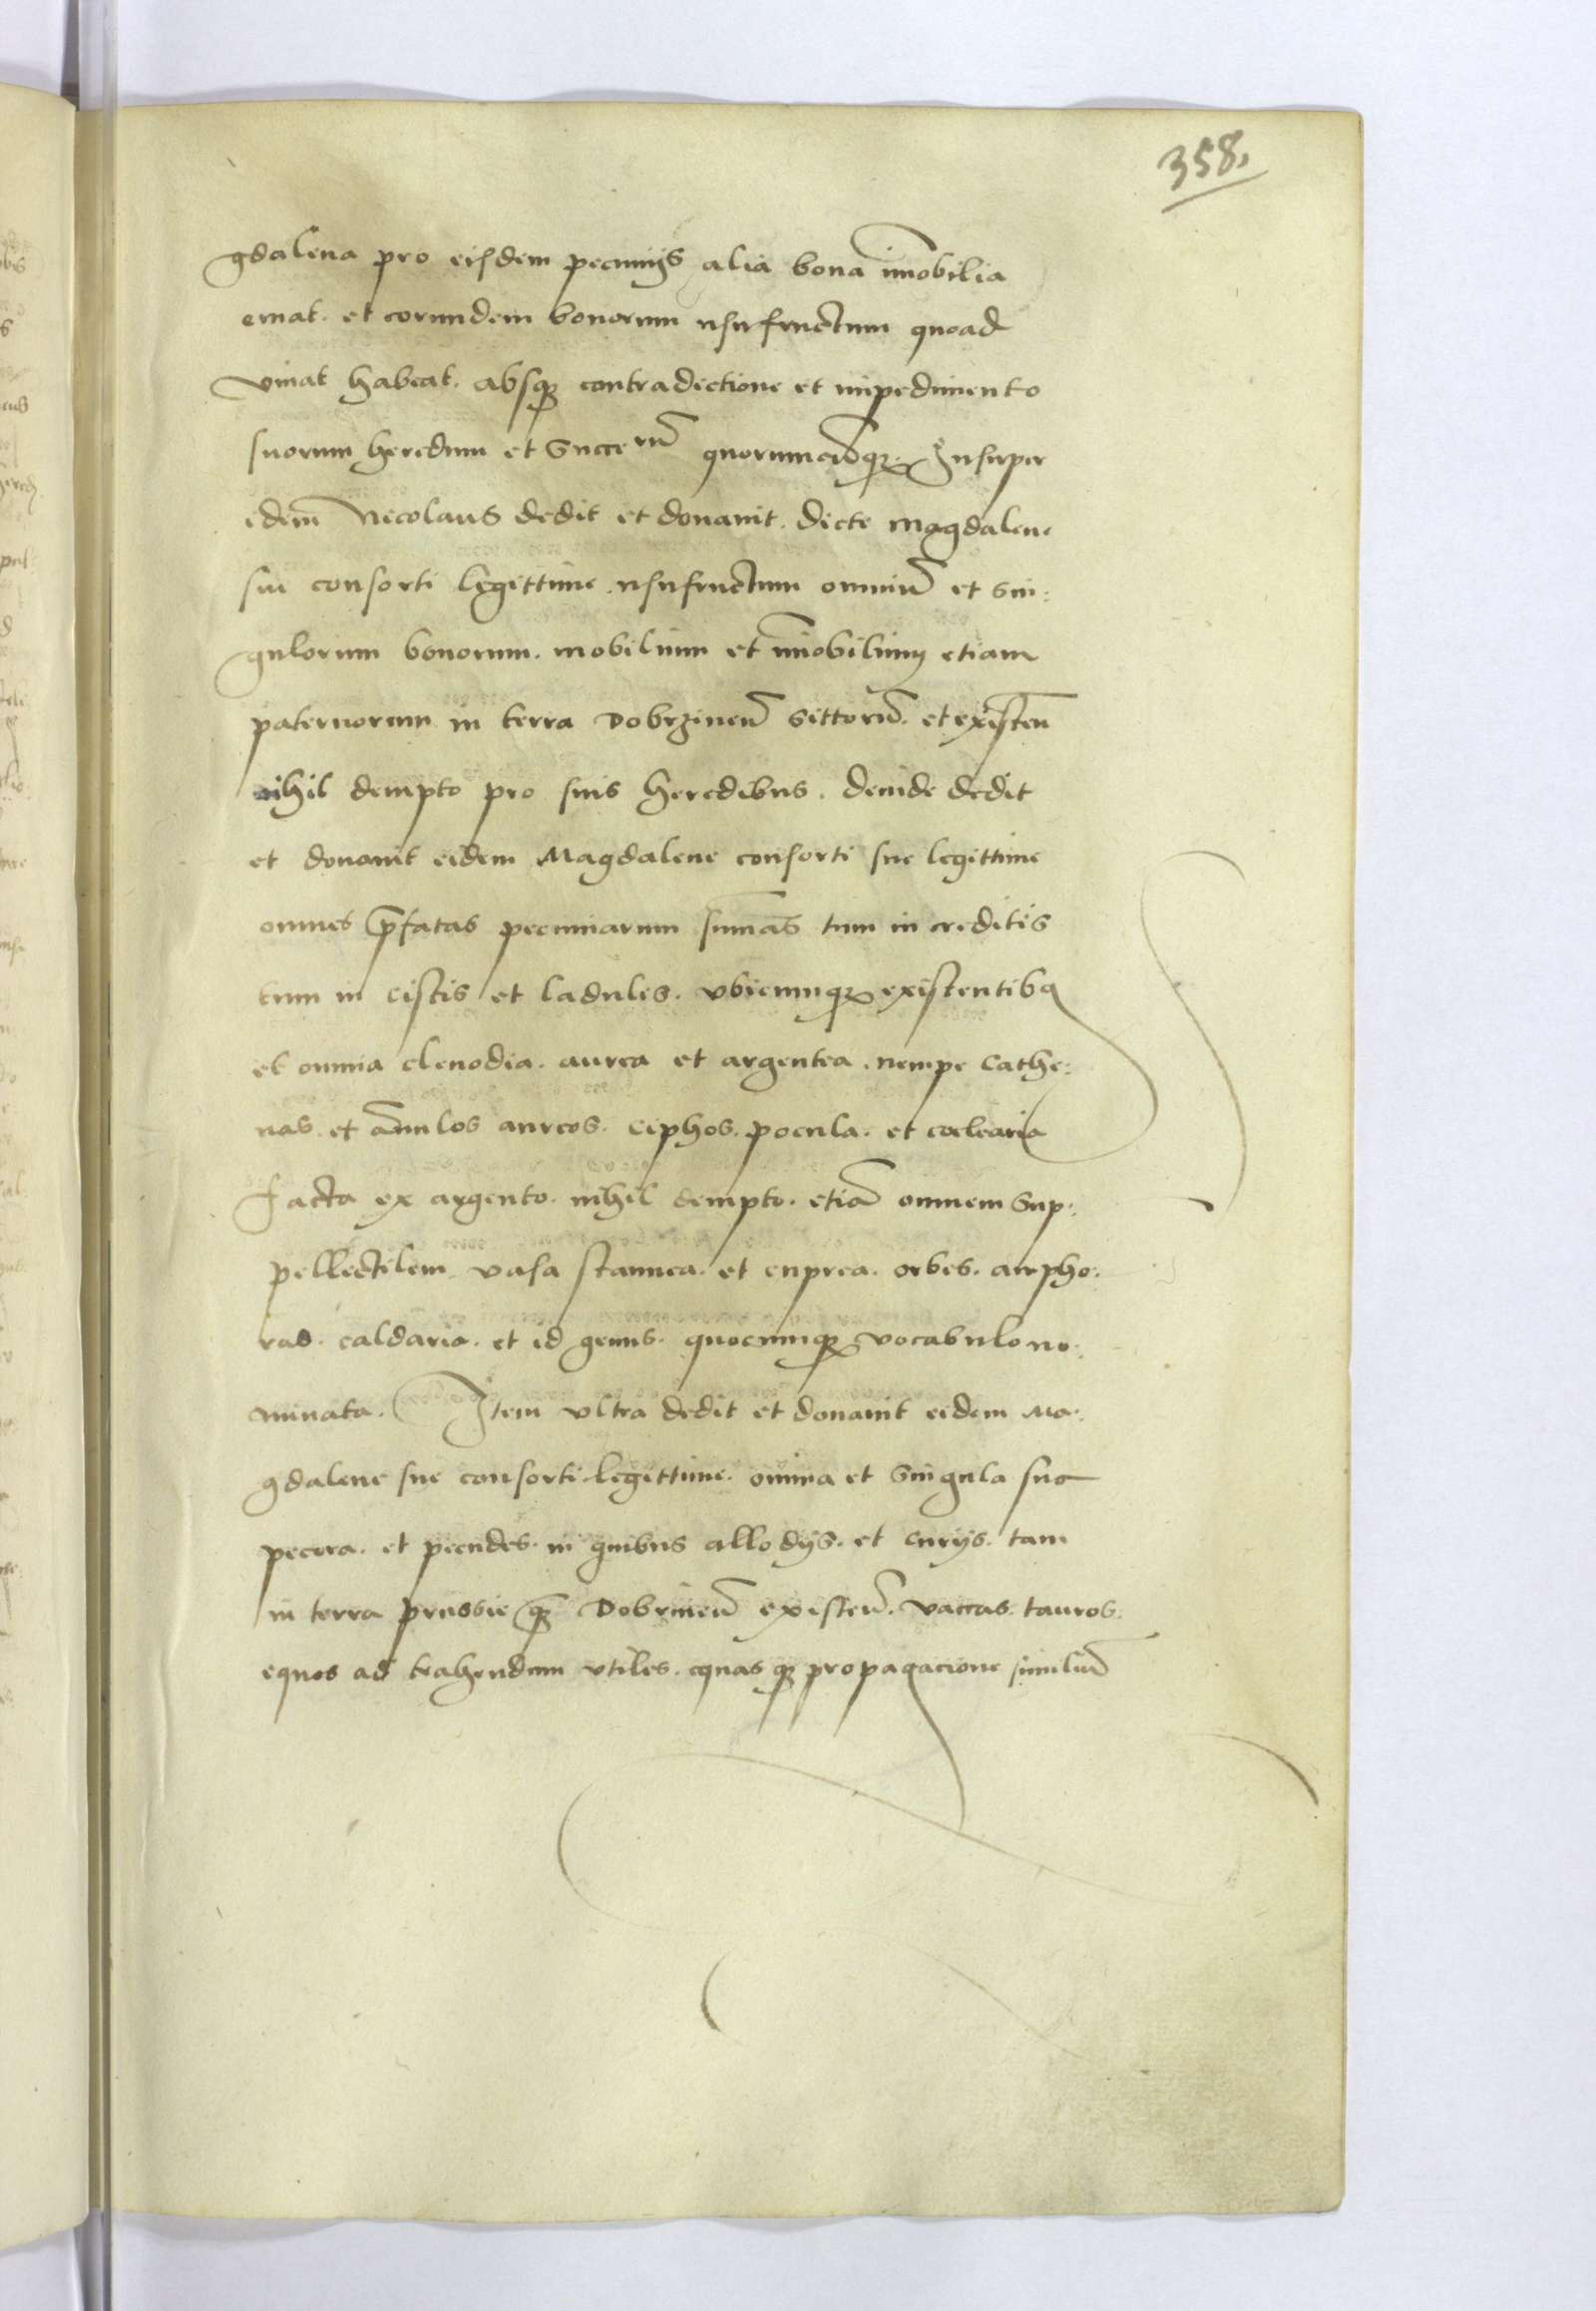 358.
gdalena pro eisdem pecuniis alia bona im̄obilia
emat. et eorundem bonorum usufructum quoad
vivat habeat. absqꝫ contradictione et impedimento
suorum heredum et Succerū quorumcūqꝫ. Insuper
idem̄ Nicolaus dedit et donavit. dicte Magdalene
sui consorti legittime usufructum omniū et Sin:
gulorum bonorum. mobilium et im̄obilium etiam
paternorum in terra Dobrzinen̄ Sittorū. et existen̄
nihil dempto pro suis heredibus. deinde dedit
et donavit eidem Magdalene consorti sue legittime
omnes p̄fatas pecuniarum sum̄as tum in creditis
tum in cistis et ladulis. ubicumqꝫ existentibꝰ
et omnia clenodia. aurea et argentea. nempe Cathe:
nas. et an̄ulos aureos. ciphos. pocula. et coclearia
facta ex argento. nihil dempto. etiā omnem Sup:
pellectilem vasa stannea. et cuprea. orbes. ampho:
ras. caldaria. et id genus. quocumqꝫ vocabulo no:
minata. Item ultra dedit et donavit eidem Ma:
gdalene sue consorti legittime. omnia et Singula sua
pecora. et pecudes. in quibus allodiis. et curiis. tam
in terra prussie qꝫ̄ Dobrinen̄ existen̄. vaccas. tauros.
equos ad trahendum utiles. equas qꝫ propagacione similiū